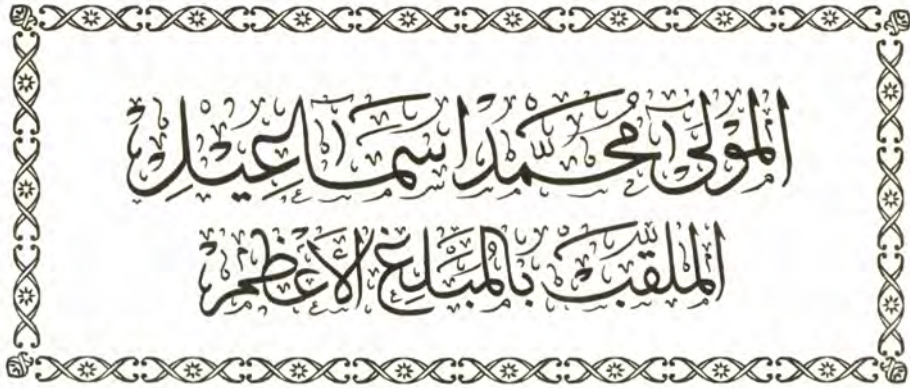 المولى محمد اسماعيل
الملقب بالمبلغ الأعظم